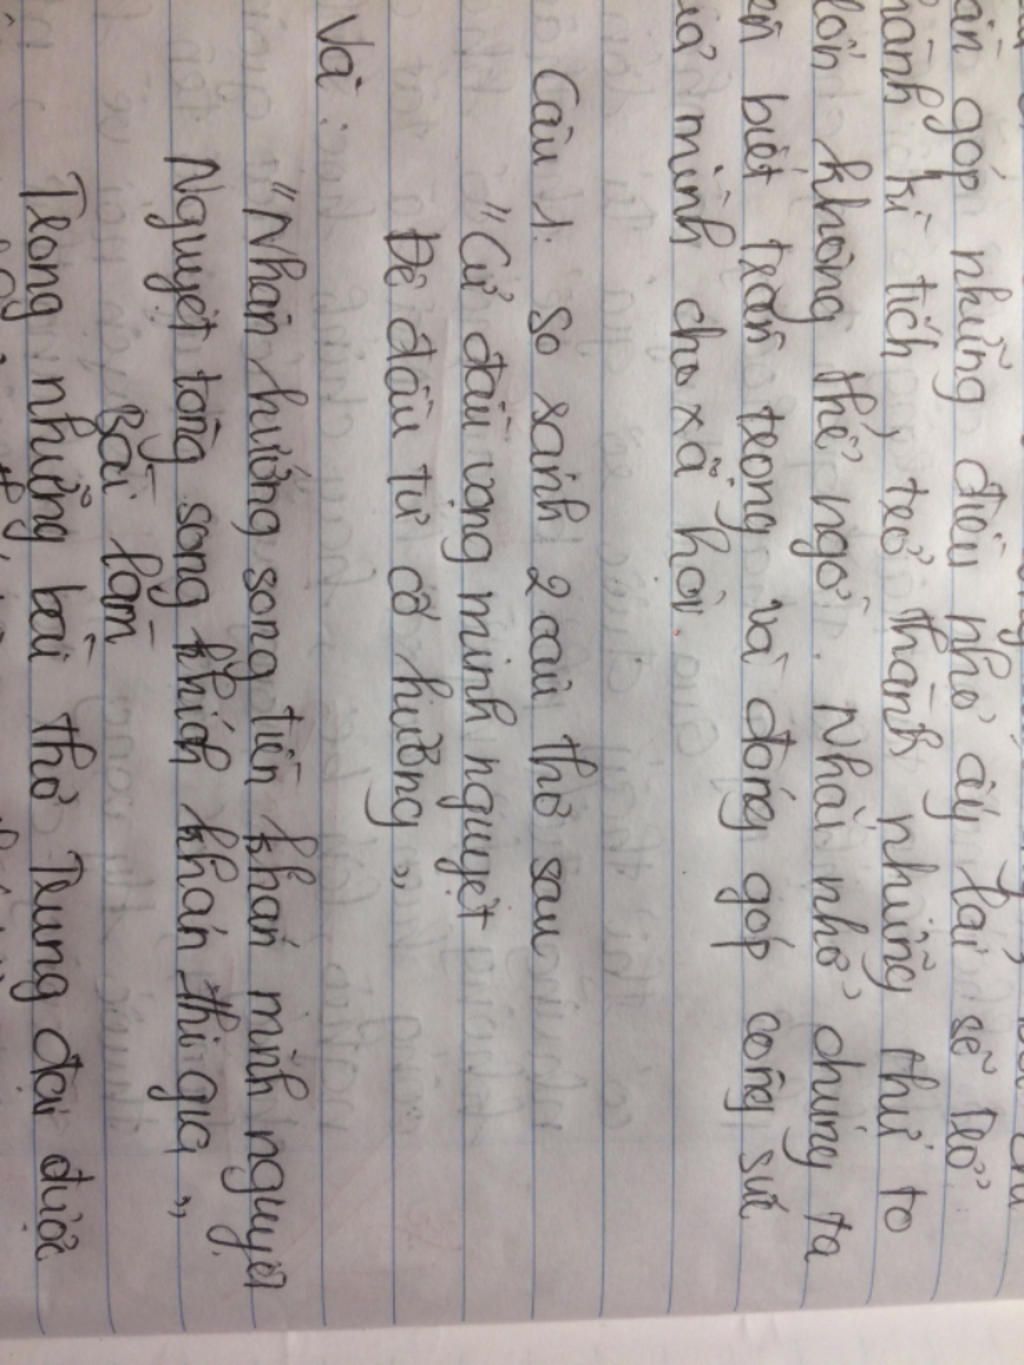 góp những điều nhỏ ấy lại sẽ trở
kì tích, trở thành những thứ to
lớn không thể ngờ. Nhắc nhở chúng ta
biết trân trọng và đóng góp công sức
mình cho xã hội.
Câu 1: So sánh 2 câu thơ sau
"Cử đầu vọng minh nguyệt
Đê đầu tư cố hương"
Và:
"Nhân hướng song tiền khán minh nguyệt
Nguyệt tòng song khích khán thi gia"
Bài làm
Trong những bài thơ Trung đại được